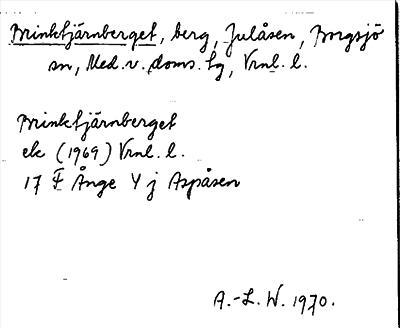 Brinktjärnberget, berg, Julåsen, Borgsjö
sn, Med. v. doms. tg, Vrnl. l.
Brinktjärnberget
ek (1969) Vrnl. l.
17 F Ånge Y j Aspåsen
A.-L. W. 1970.